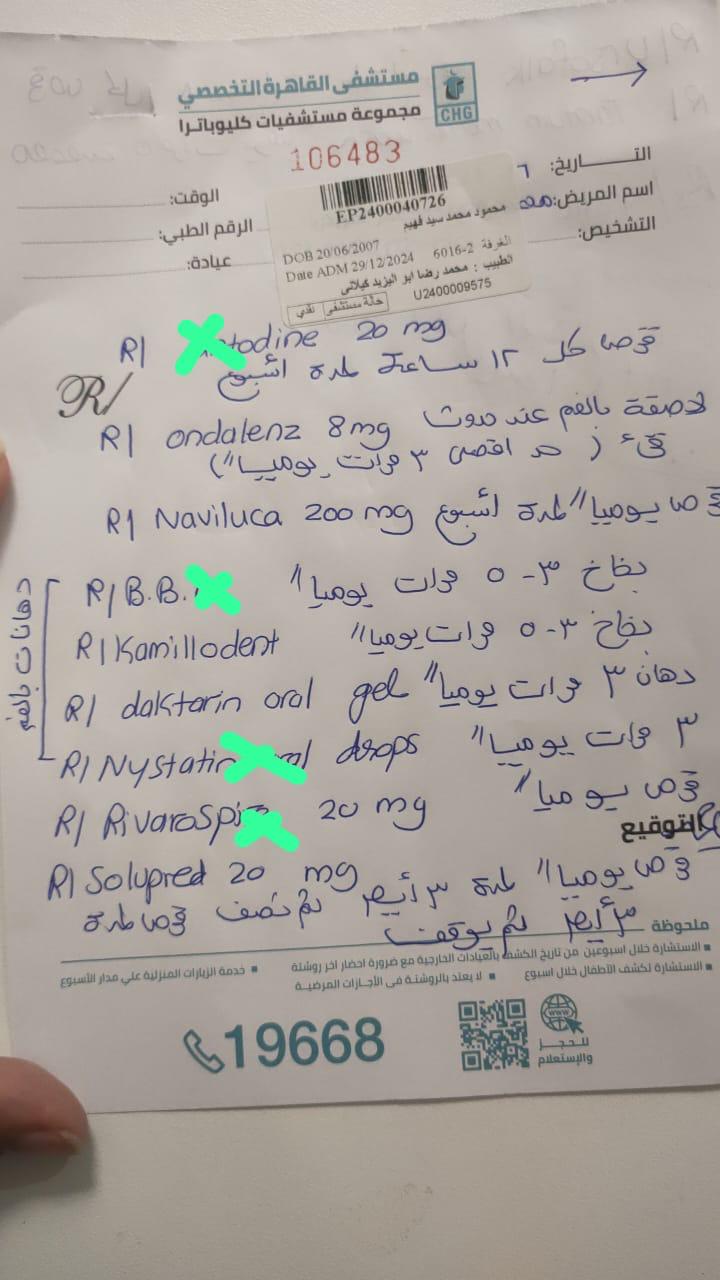 مستشفى القاهرة التخصصي
مجموعة مستشفيات كليوباترا
CHG
106483
التـــــاريخ:
الوقت:
اسم المريض:
الرقم الطبي:
التشخيص:
عيادة:
EP2400040726
محمود محمد سيد فهيم
DOB 20/06/2007
الغرفة 2-6016
Date ADM 29/12/2024
الطبيب : محمد رضا ابو اليزيد كيلاني
U2400009575
حالة مستشفى نقدي
R/ todine 20 mg
قرصا كل ١٢ ساعة لمدة أسبوع
R/
R/ ondalenz 8mg لاصقة بالفم عند حدوث
قئ ( حد اقصى ٣ مرات يوميا")
R/ Naviluca 200 mg قرص يوميا" لمدة أسبوع
دهانات بالفم
R/ B.B. بخاخ ٣-٥ مرات يوميا"
R/ Kamillodent بخاخ ٣-٥ مرات يوميا"
R/ daktarin oral gel دهان ٣ مرات يوميا"
R/ Nystatin drops ٣ مرات يوميا"
R/ Rivarosp 20 mg قرص يوميا"
التوقيع
R/ Solupred 20 mg قرص يوميا" لمدة ٣ أيام
ثم نصف قرص لمدة
٣ أيام ثم يوقف
ملحوظة
الاستشارة خلال اسبوعين من تاريخ الكشف بالعيادات الخارجية مع ضرورة احضار اخر روشتة
خدمة الزيارات المنزلية علي مدار الأسبوع
الاستشارة لكشف الأطفال خلال اسبوع
لا يعتد بالروشتة فى الأجازات المرضية
19668
www
للحجز
والإستعلام